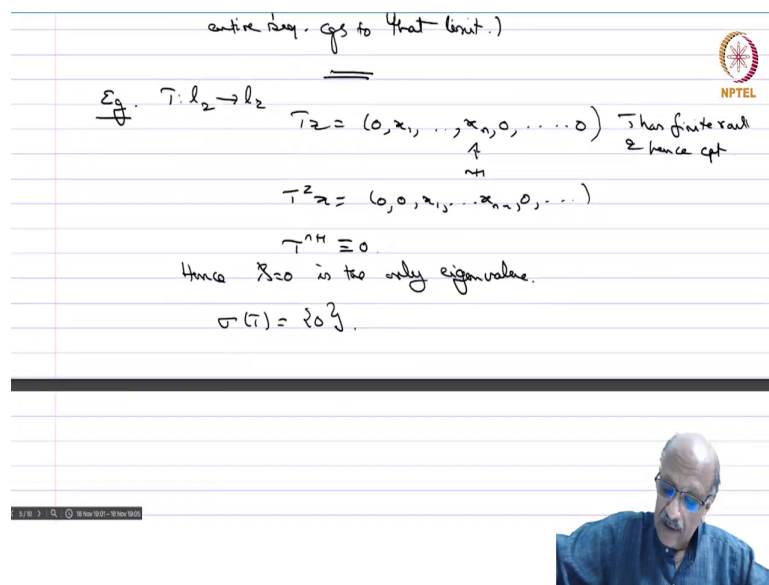 entire seq. cgs to that limit.)
NPTEL
Eg. T: l₂ → l₂
Tx = (0, x₁, .., xₙ, 0, ..... 0) T has finite rank
↑ & hence cpt
n+1
T²x = (0, 0, x₁, ... xₙ₋₁, 0, ...)
Tⁿ⁺¹ ≡ 0.
Hence λ=0 is the only eigenvalue.
σ(T) = {0}.
5/10 18 Nov 19:01 - 18 Nov 19:05